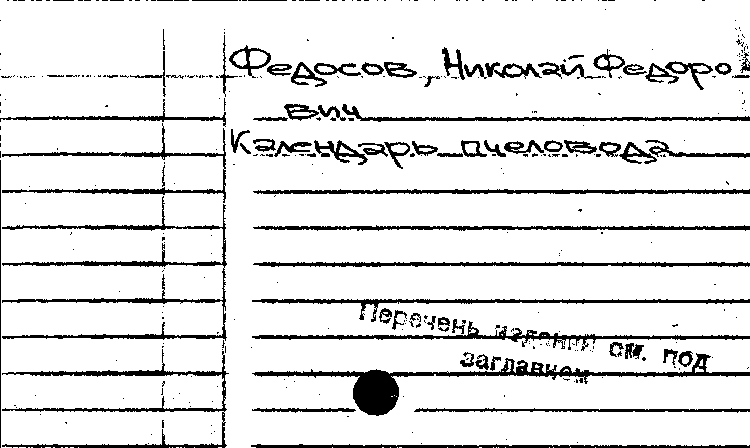 Федосов, Николай Федоро
вич
Календарь пчеловода
Перечень изданий см. под
заглавием